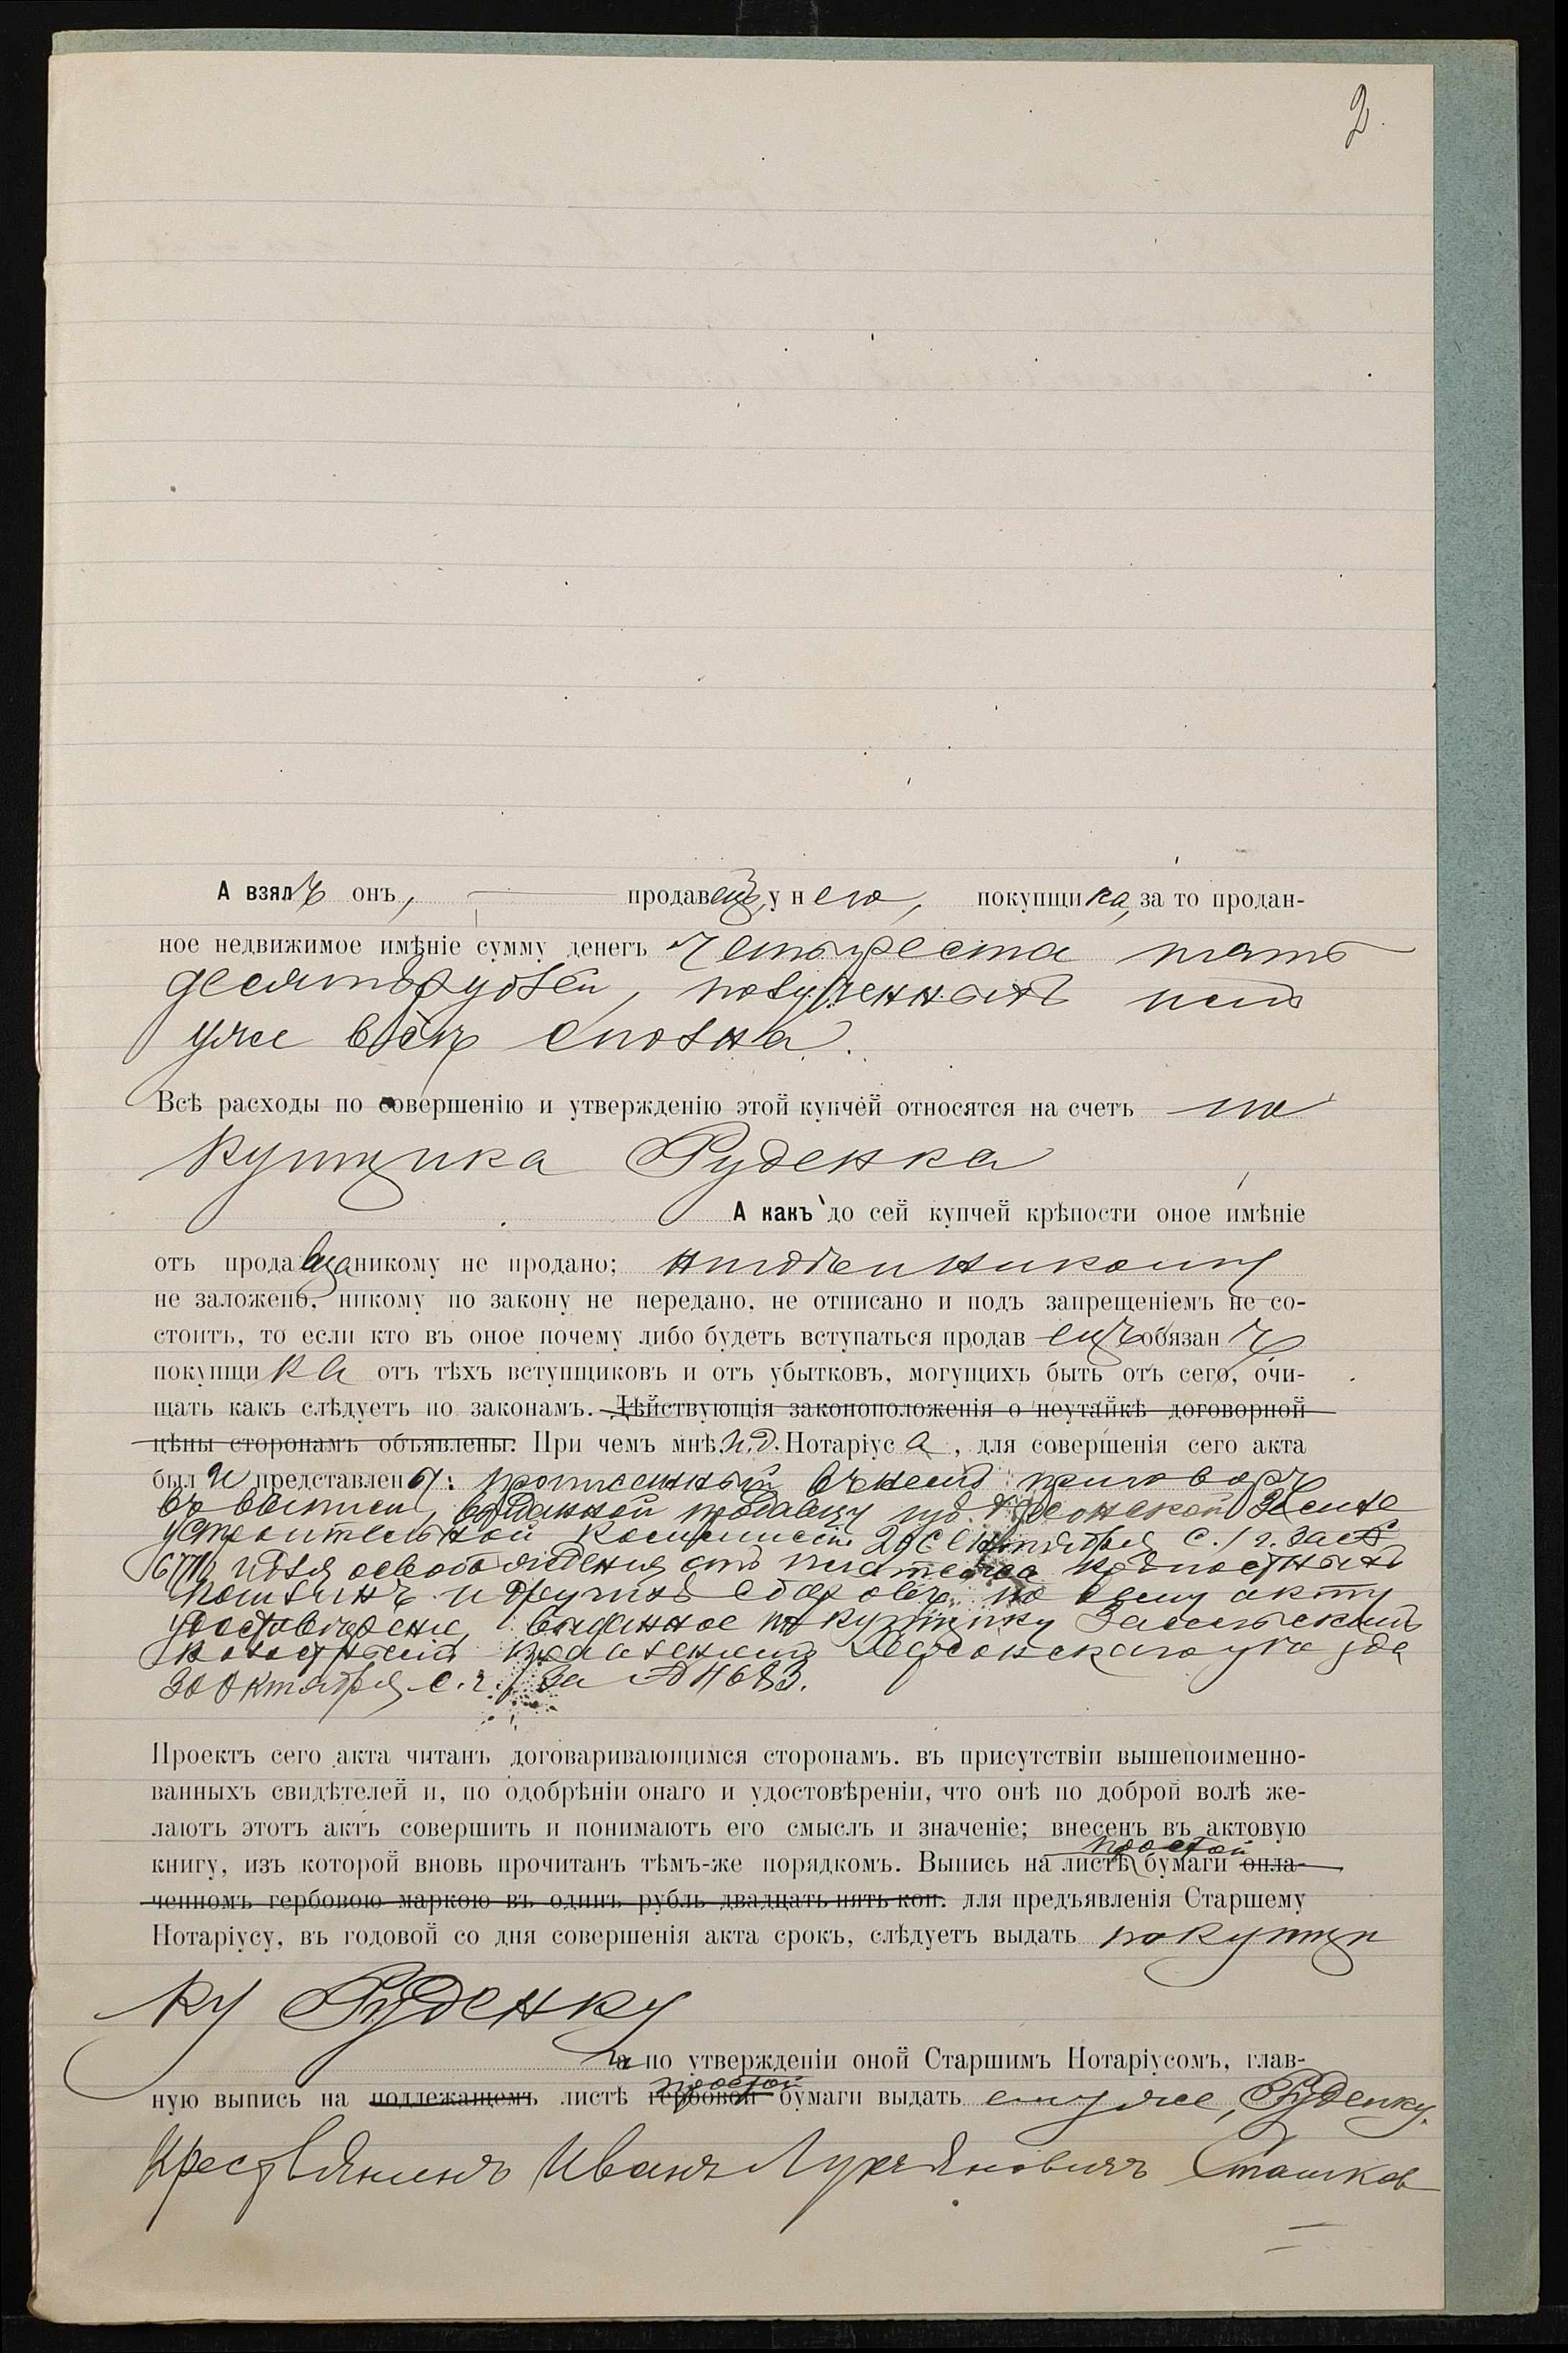 2.
А взялъ онъ, продавецъ, у него, покупщика, за то продан-
ное недвижимое имѣніе сумму денегъ четыреста пять
десятъ рублей, полученныхъ имъ
уже всѣхъ сполна.
Всѣ расходы по совершенію и утвержденію этой купчей относятся на счетъ по
купщика Руденка
А какъ до сей купчей крѣпости оное имѣніе
отъ продавца никому не продано; никому
не заложено, никому по закону не передано, не отписано и подъ запрещеніемъ не со-
стоитъ, то если кто въ оное почему либо будетъ вступаться продавецъ обязанъ
покупщика отъ тѣхъ вступщиковъ и отъ убытковъ, могущихъ быть отъ сего, очи-
щать какъ слѣдуетъ по законамъ. Дѣйствующія законоположенія о неутайкѣ договорной
цѣны сторонамъ объявлены. При чемъ мнѣ И.д. Нотаріуса, для совершенія сего акта
были представлены: приговоръ
въ выписи, выданной продавцу губ. Херсонской Земле
устроительной Коммиссіи 29 Сентября с./г. за №
и для освобожденія отъ платежа крѣпостныхъ
пошлинъ и другихъ сборовъ по сему акту
удостовѣреніе, выданное покупщику
волостнымъ правленіемъ Херсонскаго уѣзда
30 Октября с.г. за № 4683.
Проектъ сего акта читанъ договаривающимся сторонамъ, въ присутствіи вышепоименно-
ванныхъ свидѣтелей и, по одобрѣніи онаго и удостовѣреніи, что онѣ по доброй волѣ же-
лаютъ этотъ актъ совершить и понимаютъ его смыслъ и значеніе; внесенъ въ актовую
простой
книгу, изъ которой вновь прочитанъ тѣмъ-же порядкомъ. Выпись на листѣ бумаги опла-
ченномъ гербовою маркою въ одинъ рубль двадцать пять коп. для предъявленія Старшему
Нотаріусу, въ годовой со дня совершенія акта срокъ, слѣдуетъ выдать покупщи
ку Руденку
а по утвержденіи оной Старшимъ Нотаріусомъ, глав-
простой
ную выпись на подлежащемъ листѣ гербовой бумаги выдать ему же, Руденку.
Крестьянинъ Иванъ Лукьяновичъ Сташков